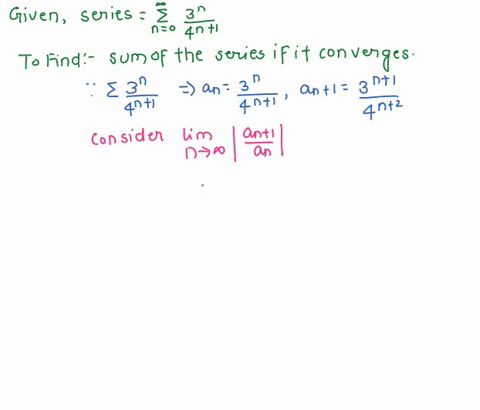 Given, series = ∞∑n=0 3^n/4^(n+1)
To Find:- sum of the series if it converges.
∵ Σ 3^n/4^(n+1) ⇒ an = 3^n/4^(n+1), an+1 = 3^(n+1)/4^(n+2)
consider lim n→∞ |an+1/an|